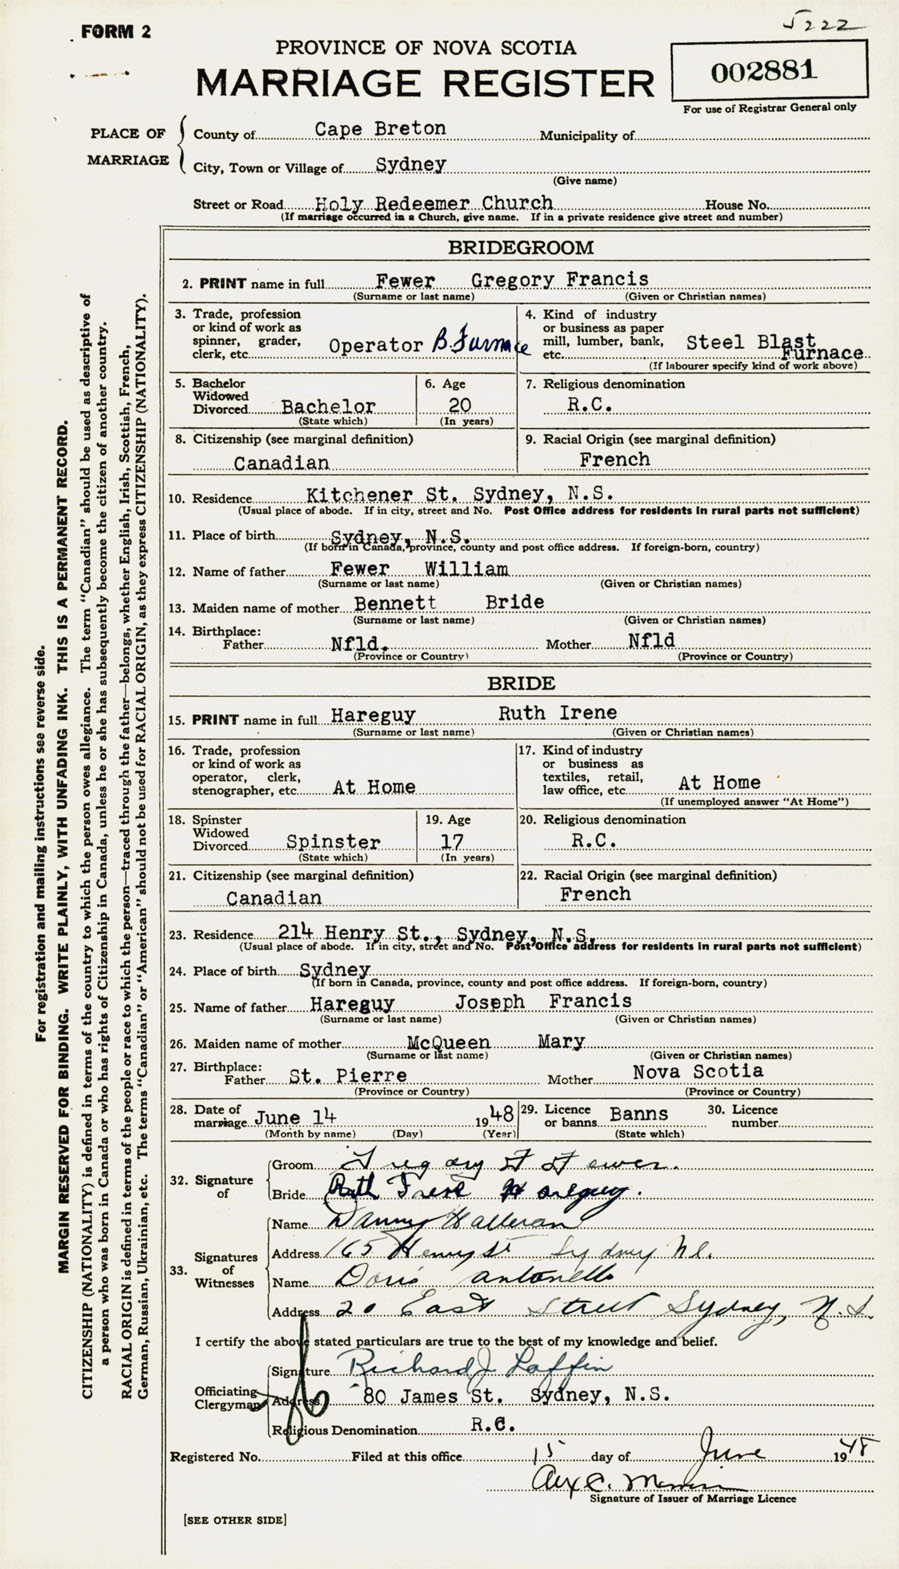 FORM 2
5222
PROVINCE OF NOVA SCOTIA
MARRIAGE REGISTER
002881
For use of Registrar General only
PLACE OF MARRIAGE
County of Cape Breton Municipality of
City, Town or Village of Sydney
(Give name)
Street or Road Holy Redeemer Church House No.
(If marriage occurred in a Church, give name. If in a private residence give street and number)
BRIDEGROOM
2. PRINT name in full Fewer Gregory Francis
(Surname or last name) (Given or Christian names)
3. Trade, profession
or kind of work as
spinner, grader,
clerk, etc. Operator B. Furnace
4. Kind of industry
or business as paper
mill, lumber, bank,
etc. Steel Blast
Furnace
(If labourer specify kind of work above)
5. Bachelor
Widowed
Divorced Bachelor
(State which)
6. Age
20
(In years)
7. Religious denomination
R.C.
8. Citizenship (see marginal definition)
Canadian
9. Racial Origin (see marginal definition)
French
10. Residence Kitchener St. Sydney, N.S.
(Usual place of abode. If in city, street and No. Post Office address for residents in rural parts not sufficient)
11. Place of birth Sydney, N.S.
(If born in Canada, province, county and post office address. If foreign-born, country)
12. Name of father Fewer William
(Surname or last name) (Given or Christian names)
13. Maiden name of mother Bennett Bride
(Surname or last name) (Given or Christian names)
14. Birthplace:
Father Nfld. Mother Nfld
(Province or Country) (Province or Country)
BRIDE
15. PRINT name in full Hareguy Ruth Irene
(Surname or last name) (Given or Christian names)
16. Trade, profession
or kind of work as
operator, clerk,
stenographer, etc. At Home
17. Kind of industry
or business as
textiles, retail,
law office, etc. At Home
(If unemployed answer "At Home")
18. Spinster
Widowed
Divorced Spinster
(State which)
19. Age
17
(In years)
20. Religious denomination
R.C.
21. Citizenship (see marginal definition)
Canadian
22. Racial Origin (see marginal definition)
French
23. Residence 214 Henry St., Sydney, N.S.
(Usual place of abode. If in city, street and No. Post Office address for residents in rural parts not sufficient)
24. Place of birth Sydney
(If born in Canada, province, county and post office address. If foreign-born, country)
25. Name of father Hareguy Joseph Francis
(Surname or last name) (Given or Christian names)
26. Maiden name of mother McQueen Mary
(Surname or last name) (Given or Christian names)
27. Birthplace:
Father St. Pierre Mother Nova Scotia
(Province or Country) (Province or Country)
28. Date of
marriage June 14 1948
(Month by name) (Day) (Year)
29. Licence
or banns Banns
(State which)
30. Licence
number
32. Signature of
Groom Gregory F Fewer.
Bride Ruth Irene Hareguy.
33. Signatures of Witnesses
Name Danny Halleran
Address 165 Henry St Sydney N.S.
Name Doris Antonello
Address 20 East Street Sydney, N.S.
I certify the above stated particulars are true to the best of my knowledge and belief.
Officiating Clergyman
Signature Richard J Laffin
Address 80 James St. Sydney, N.S.
Religious Denomination R.C.
Registered No. Filed at this office 15 day of June 1948
Alex C.
Signature of Issuer of Marriage Licence
[SEE OTHER SIDE]
For registration and mailing instructions see reverse side.
MARGIN RESERVED FOR BINDING. WRITE PLAINLY, WITH UNFADING INK. THIS IS A PERMANENT RECORD.
CITIZENSHIP (NATIONALITY) is defined in terms of the country to which the person owes allegiance. The term "Canadian" should be used as descriptive of
a person who was born in Canada or who has rights of Citizenship in Canada, unless he or she has subsequently become the citizen of another country.
RACIAL ORIGIN is defined in terms of the people or race to which the person—traced through the father—belongs, whether English, Irish, Scottish, French,
German, Russian, Ukrainian, etc. The terms "Canadian" or "American" should not be used for RACIAL ORIGIN, as they express CITIZENSHIP (NATIONALITY).